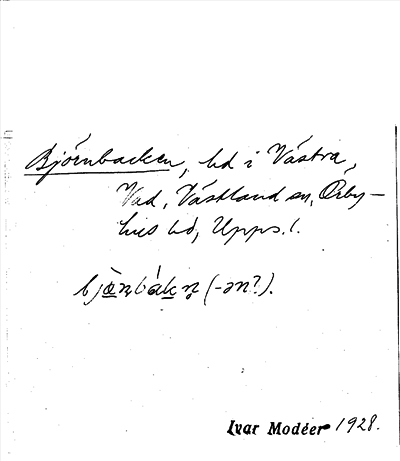 Björnbacken, bd i Västra
Vad, Västland sn, Örby-
hus hd, Upps. l.
(-ən?).
Ivar Modéer 1928.